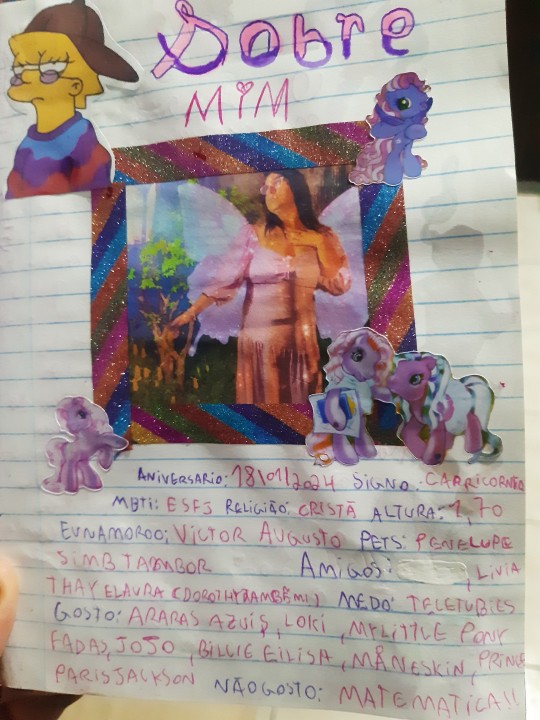 Sobre
MIM
ANIVERSARIO: 18\01/2024 SIGNO: CAPRICORNIO
MBTI: ESFJ RELIGIÃO: CRISTÃ ALTURA: 1,70
EUNAMORO: VICTOR AUGUSTO PETS: PENELUPE
SIMB TAMBOR AMIGOS: , LIVIA
THAY ELAURA (DOROTHYTAMBÉM!) MEDO: TELETUBIES
GOSTO: ARARAS AZUIS, LOKI, MY LITTLE PONY
FADAS, JOJO, BILLIE EILISH, MÅNESKIN, PRINCE
PARIS JACKSON NÃO GOSTO: MATEMATICA!!